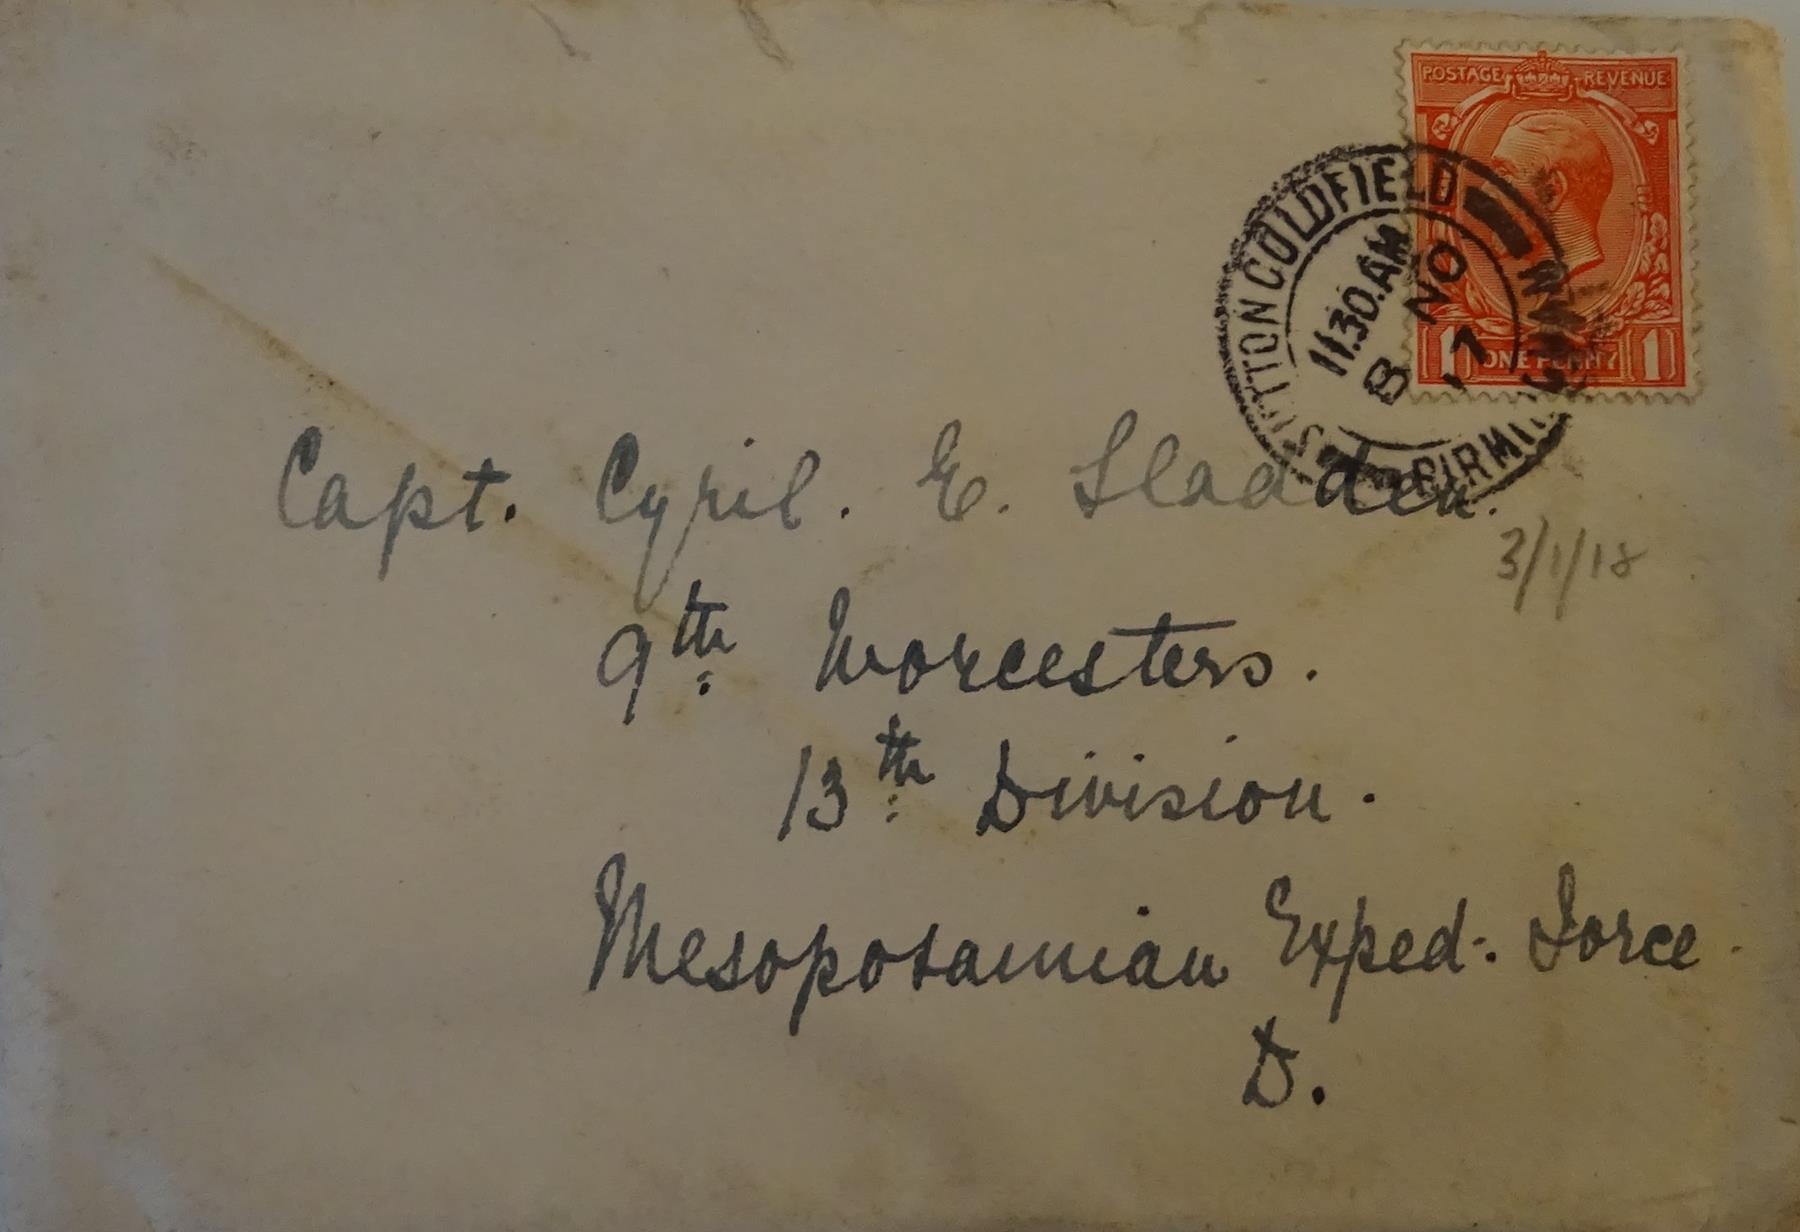 POSTAGE REVENUE
SUTTON COLDFIELD
11.30.AM
8 NO
17
BIRMINGHAM
1 ONE PENNY 1
Capt. Cyril. E. Sladden.
3/1/18
9th Worcesters.
13th Division.
Mesopotamian Exped. Force.
D.